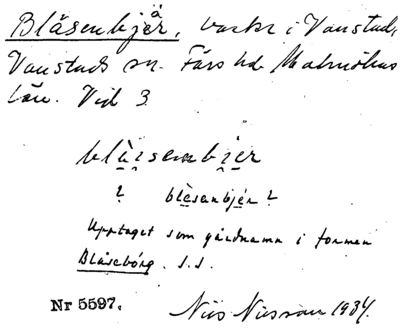 Blåsenbjär, backe i Vanstad,
Vanstads sn. Färs hd. Malmöhus
län. Vid 3.
blàisenbjer
? blèsenbjér ?
Upptaget som gårdnamn i formen
Blåseborg. s.s.
Nr 5597. Nils Nilsson 1934.